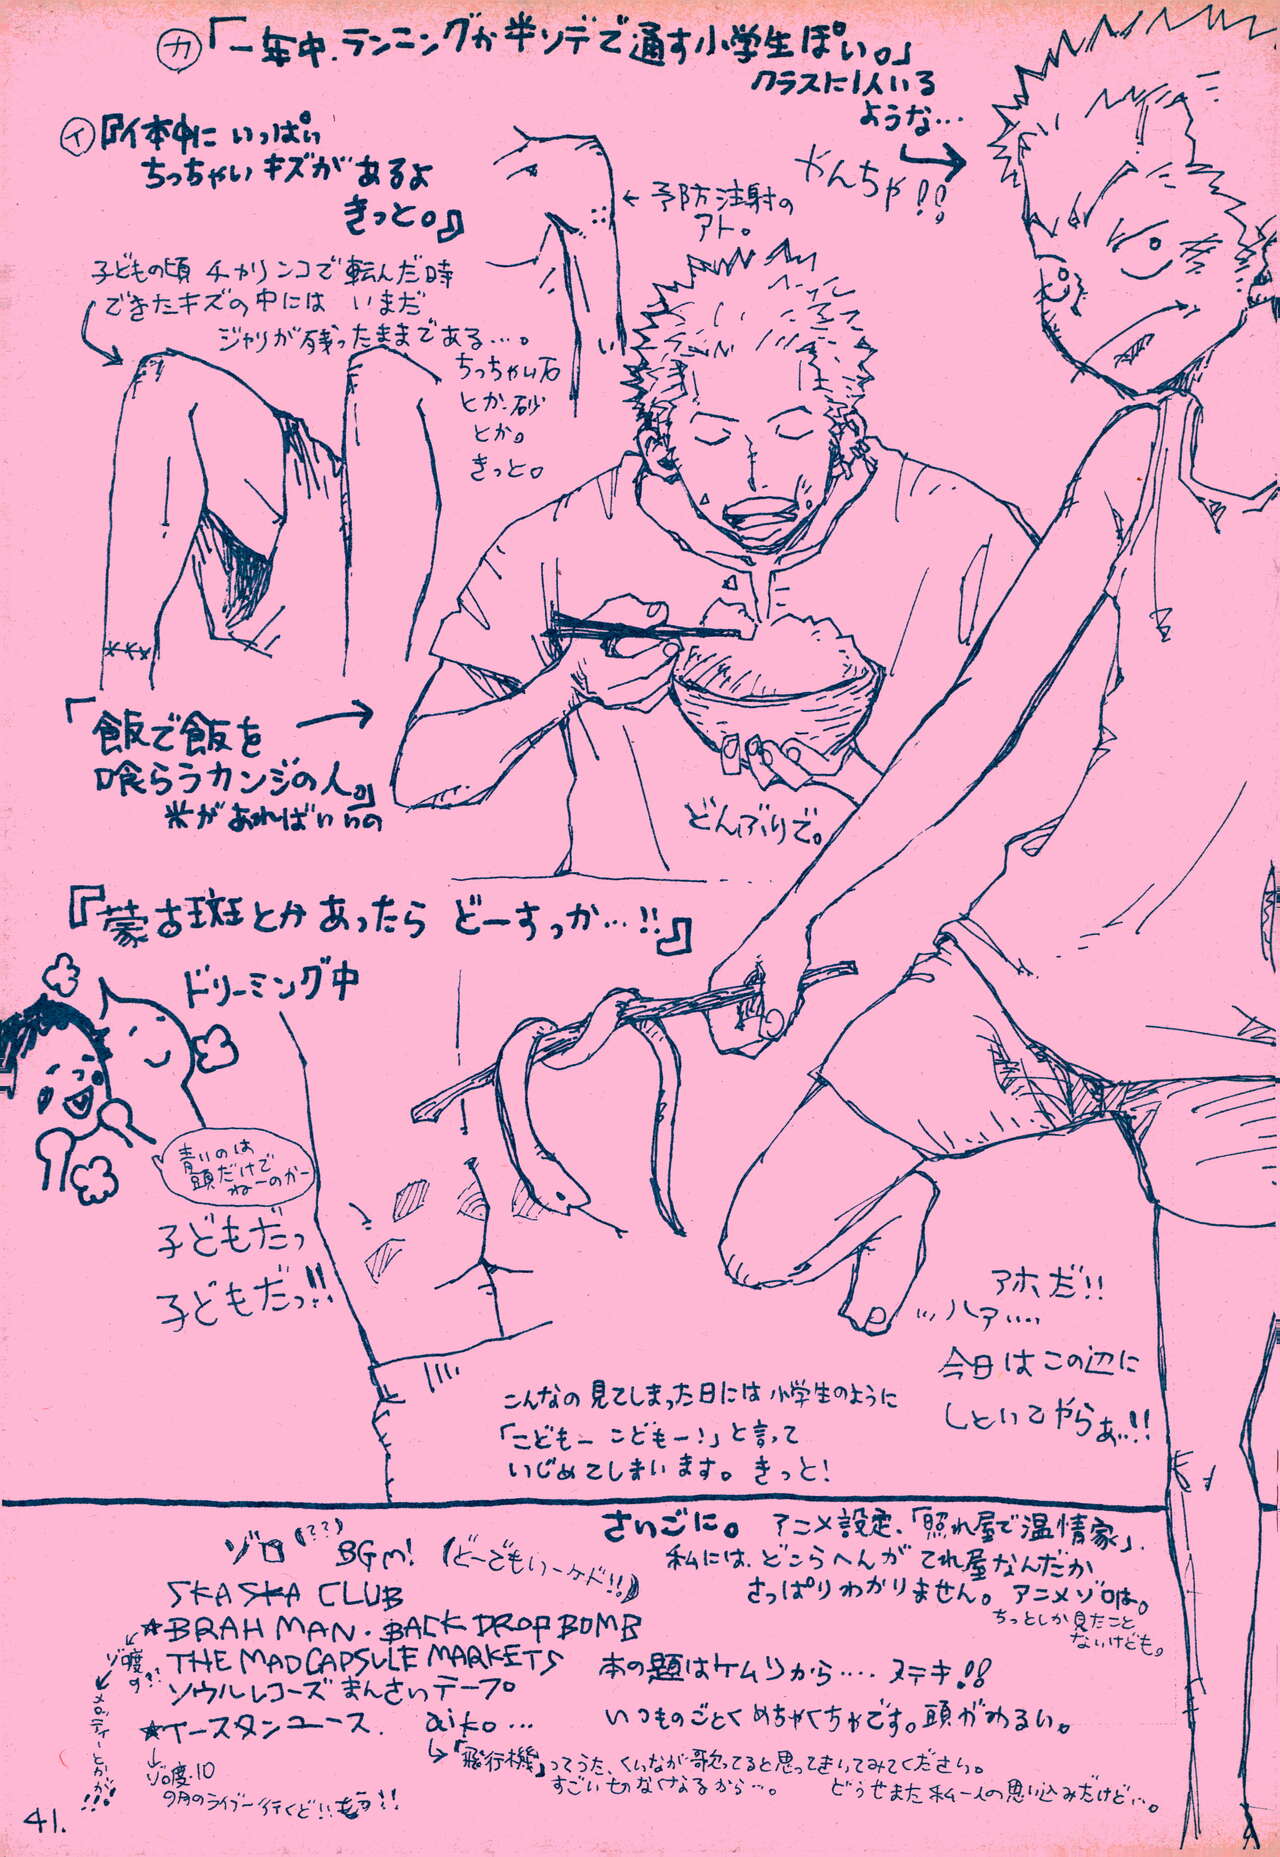 カ「一年中、ランニングか半ソデで通す小学生ぽい。」
クラスに1人いる
ような…
やんちゃ!!
イ『体中に いっぱい
ちっちゃい キズが あるよ
きっと。』
← 予防注射の
アト。
子どもの頃 チャリンコで転んだ時
できたキズの中には いまだ
ジャリが残ったままである…。
ちっちゃい石
とか、砂
とか。
きっと。
「飯で飯を
喰らうカンジの人。」
米があればいいの
どんぶりで。
『蒙古斑とか あったら どーすっか…!!』
ドリーミング中
青いのは
頭だけで
ねーのかー
子どもだっ
子どもだっ!!
アホだ!!
…ハァ…
今日はこの辺に
しといてやらぁ!!
こんなの見てしまった日には小学生のように
「こどもー こどもー!」と言って
いじめてしまいます。きっと!
ゾロ(??) BGM! (どーでもいーケド!!)
SKA SKA CLUB
☆BRAHMAN・BACK DROP BOMB
THE MAD CAPSULE MARKETS
ソウルレコーズまんさいテープ。
☆イースタンユース. aiko…
ゾロ度
の??
メロッティーとかが!!!
ゾロ度10
9月のライブー行くど!!もう!!
→「飛行機」ってうた、くいなが歌ってると思ってきいてみてください。
すごい切なくなるから…。 どうせまた私一人の思い込みだけど…。
さいごに。 アニメ設定、「照れ屋で温情家」、
私には、どこらへんが てれ屋なんだか
さっぱりわかりません。アニメゾロは。
ちっとしか見たこと
ないけども。
本の題はケムリから…. ステキ!!
いつものごとくめちゃくちゃです。頭がわるい。
41.